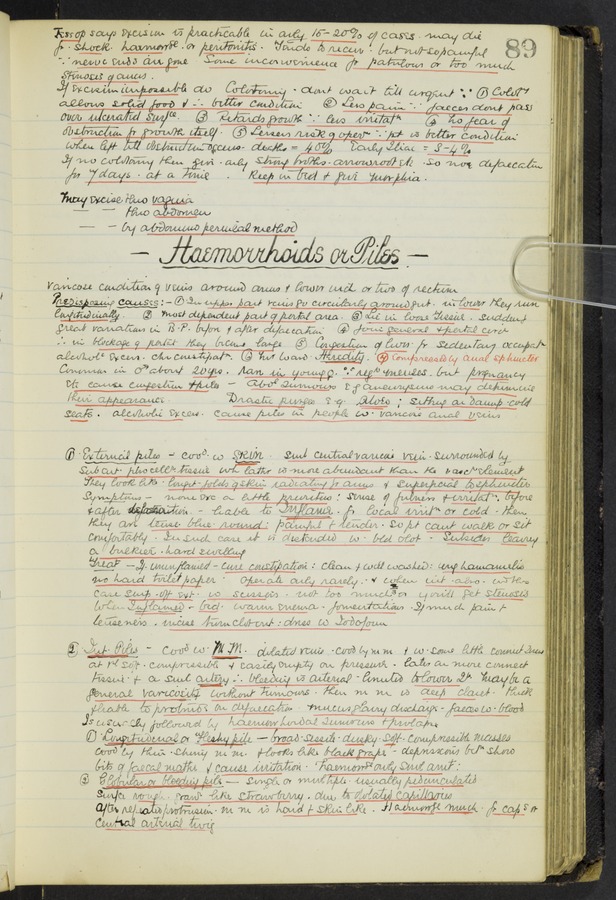 says excision is practicable in only 15-20% of cases. may die
fr shock haemorrge or peritonitis. Tends to recur. but not so painful
∵ nerve ends are gone Some inconvenience fr patulous or too much
stenosis of anus.
89
If excision impossible do Colotomy. dont wait till urgent ∵ ① Coloty
allows solid food & ∴ better condition ② Less pain ∵ faeces dont pass
over ulcerated surfce ③ Retards growth ∵ less irritatn ④ no fear of
obstruction fr growth itself ⑤ Lessens risk of opern ∵ pt in better condition
when left till obstruction occurs deaths = 40% Early Iliac = 3-4%
If no colotomy then give only strong broths. arrowroot etc so no defaecation
for 7 days at a time. Keep in bed & give morphia.
may excise thro vagina
— — thro abdomen
— — by abdomino perineal method
— Haemorrhoids or Piles —
Varicose condition of veins around anus & lower inch or two of rectum
Predisposing causes:- ① In upper part veins go circularly around gut. in lower they run
longitudinally ② most dependent part of portal area ③ Lie in loose tissue. Sudden
great variations in B.P. before & after defaecation ④ Joins general & portal circn
∴ in blockage of portal they become large ⑤ Congestion of liver fr sedentary occupatn
alcoholc excess. chr constipatn. ⑥ his ward Heredity. ⑦ Compressed by anal sphincter
Common in ♂ about 20 yrs. rare in young ♀ ∵ regr menses. but pregnancy
etc cause congestion & piles — abdl tumours Eg aneurysms may determine
their appearance Drastic purges e.g. Aloes; sitting on damp. cold
seats. alcoholic excess. cause piles in people w. varicose anal veins
① External piles — covd w Skin. Sml central varicose vein. surrounded by
subcut. fibrocellr tissue wh latter is more abundant than the vascr element
They look like longtl folds of skin radiating fr anus & superficial to sphincter
Symptoms — none exc a little pruritus: sense of fulness & irritatn. before
& after defaecation — liable to Inflame fr local irritn or cold. then
they are tense blue round: painful & tender. So pt cant walk or sit
comfortably. In such case it is distended w. bld clot. Subsides leaving
a bulkier. hard swelling
Treat — If uninflamed — cure constipation: clean & well washed: ung hamamelis
no hard toilet paper. Operate only rarely. & when int also.
care snip off ext w scissors. not too much or you'll get stenosis
When Inflamed — bed. warm enema. fomentations. If much pain &
tenseness. incise turn clot out: dress w Iodoform
② Int Piles — covd w. M.M. dilated veins. covd by m m & w some little connect tissue
at 1st soft. compressible & easily empty on pressure. later on more connect
tissue & a sml artery ∴ bleeding is arterial. limited to lower 2". may be a
general varicosity without tumours. then m m is deep claret. thick
& liable to protrus on defaecation. mucus glairy discharge. faeces w. blood
Is usually followed by haemorrhoidal tumours & prolapse
① Longitudinal or Fleshy pile — broad. sessile. dusky soft. compressible masses
covd by thin. shiny m m & looks like black grape. depressions betn show
bits of faecal matter & cause irritation. haemorr only sml amt:
② Globular or bleeding pile — single or multiple. usually pedunculated
Surfce rough. granr like strawberry. due to dilated capillaries
after repeated protrusion. m m is hard & skin like. Haemorrge much fr caps or
central arterial twig